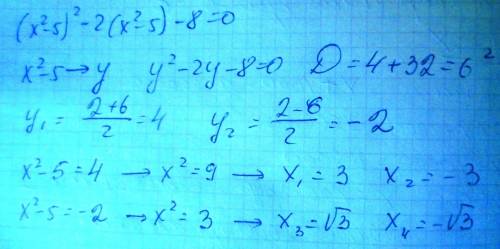 (x²-5)²-2(x²-5)-8=0
x²-5→y y²-2y-8=0 D=4+32=6²
y₁=(2+6)/2=4 y₂=(2-6)/2=-2
x²-5=4 →x²=9 → x₁=3 x₂=-3
x²-5=-2 →x²=3 → x₃=√3 x₄=-√3